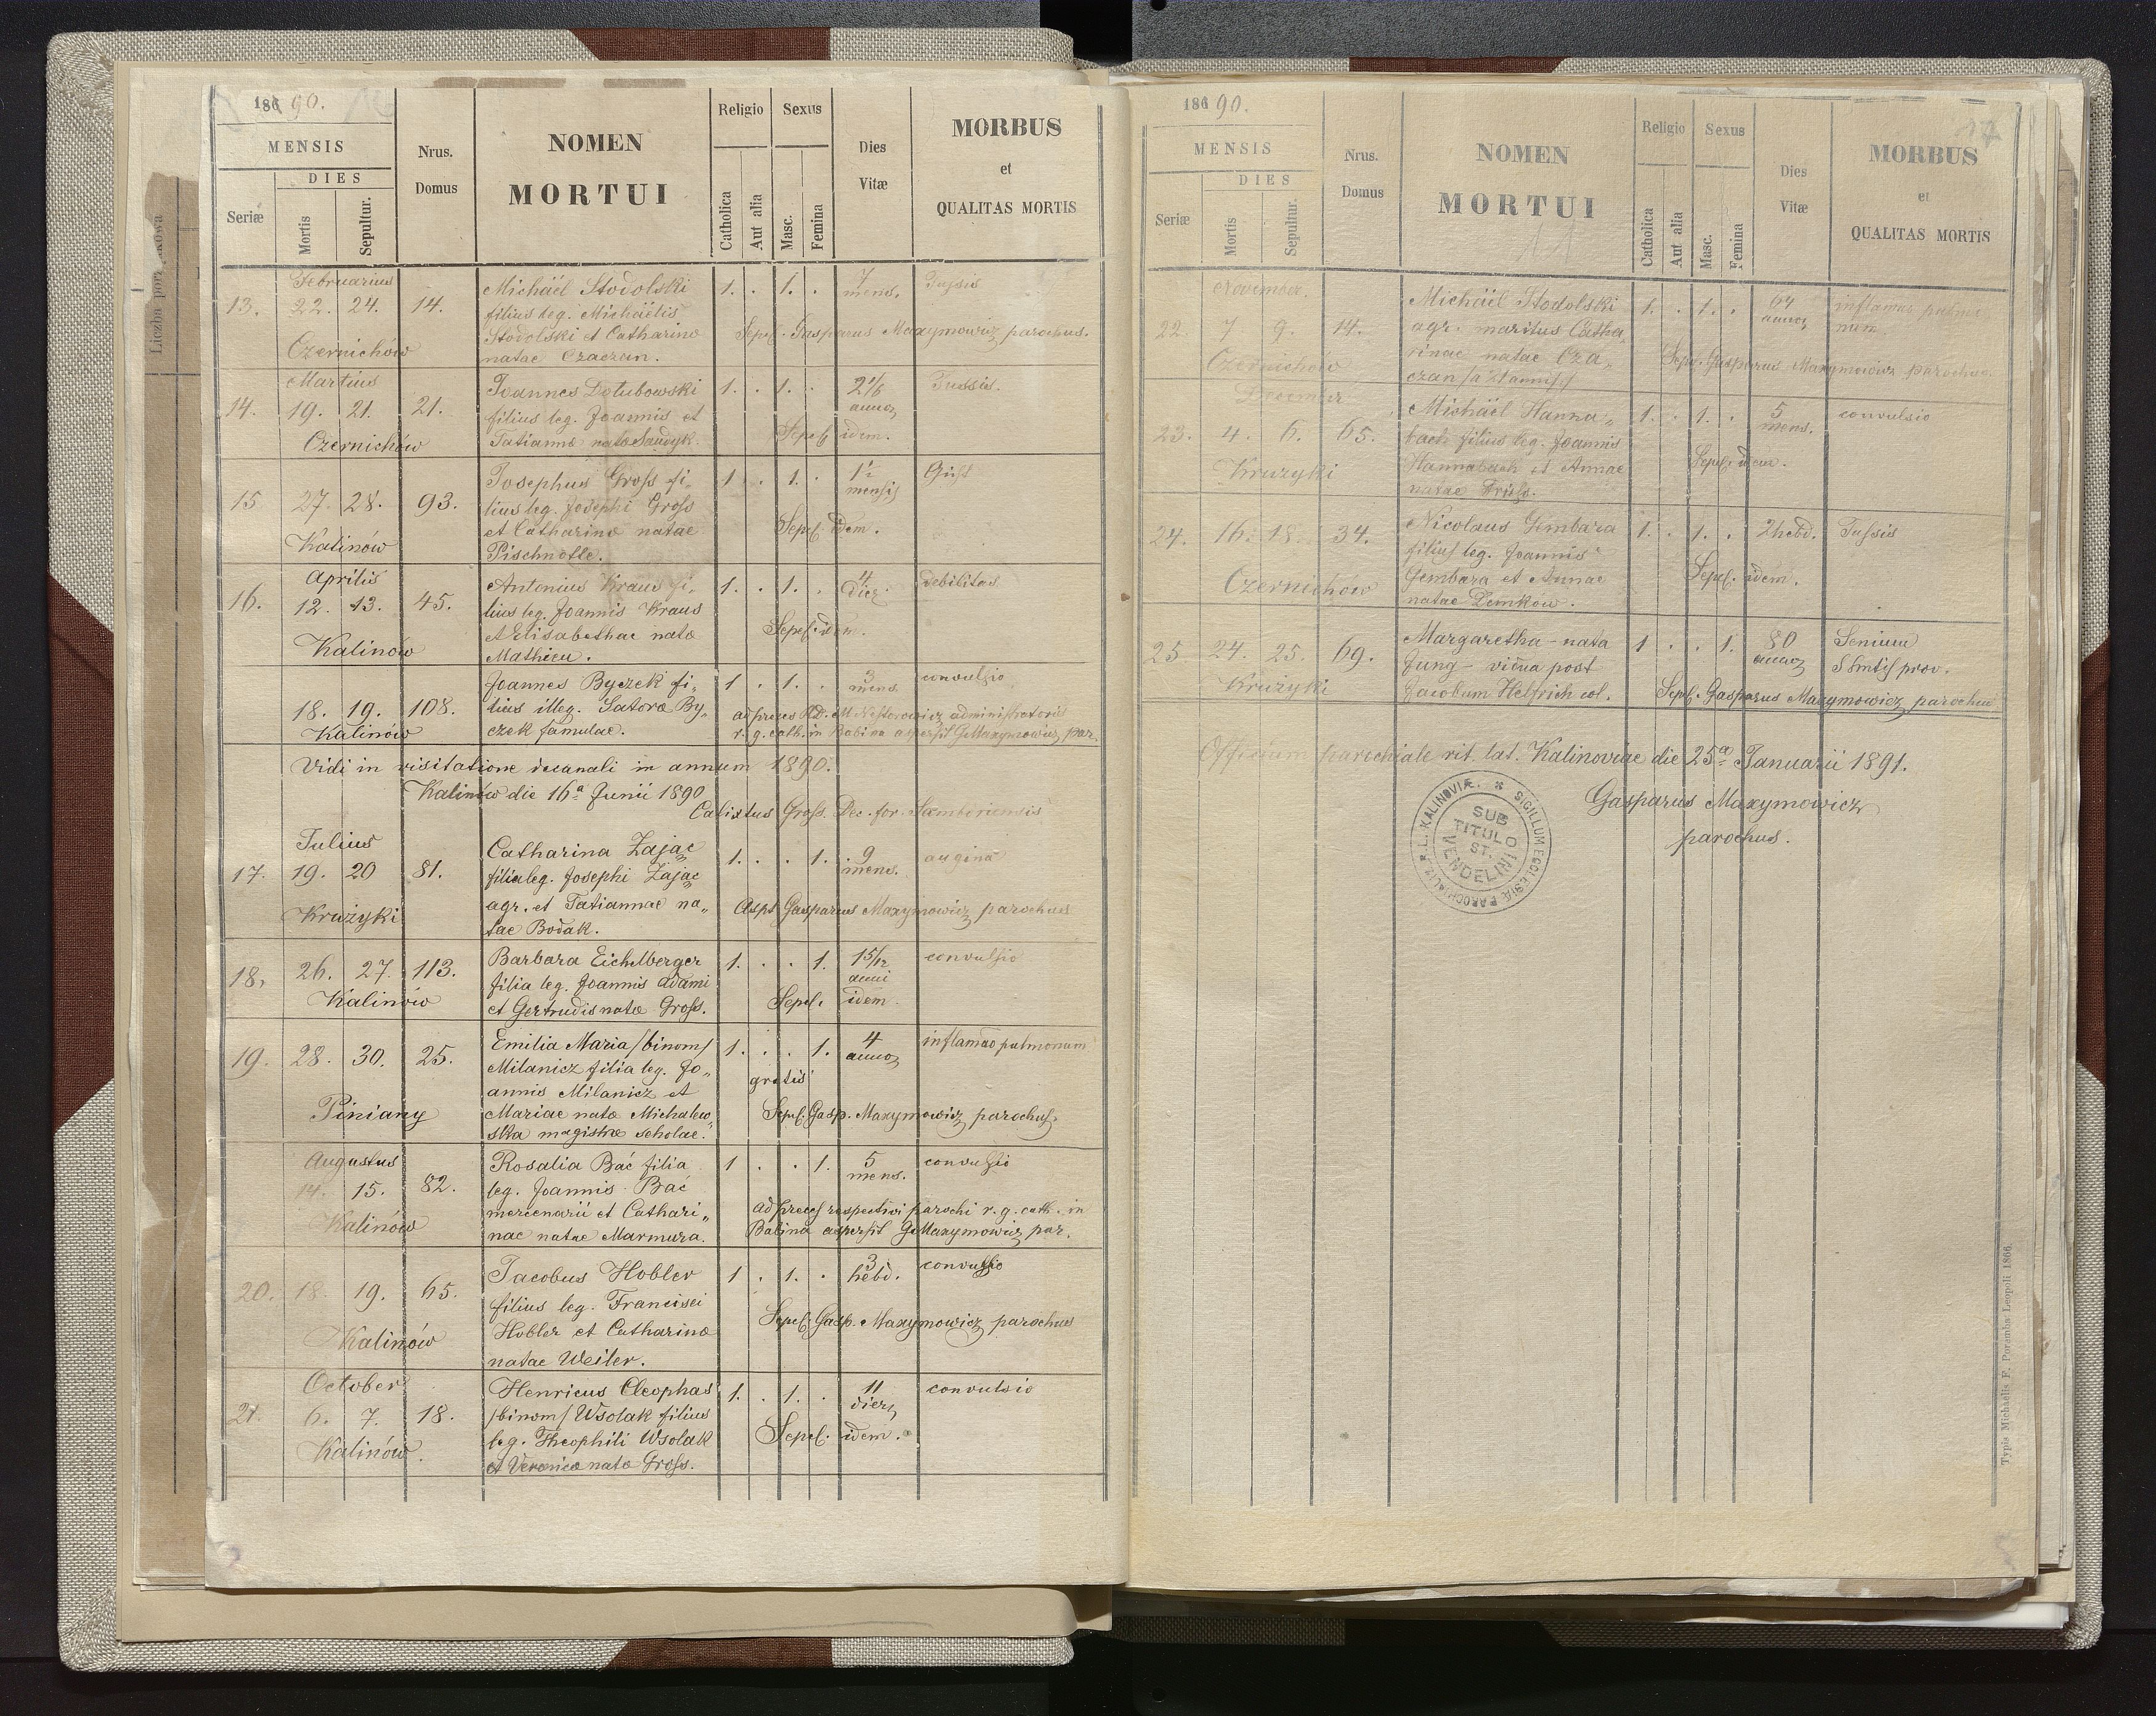 186 90.
MENSIS
DIES
Seriæ
Mortis
Sepultur.
Nrus.
Domus
NOMEN
MORTUI
Religio
Catholica
Aut alia
Sexus
Masc.
Femina
Dies
Vitæ
MORBUS
et
QUALITAS MORTIS
Februarius
13. 22. 24. 14.
Czernichów
Michäel Stodolski
filius leg. Michäelis
Stodolski et Catharinæ
natae Czaczan.
1. . 1. . 7
mens.
Tussis
Sepel. Gasparus Maxymowicz parochus.
Martius
14. 19. 21. 21.
Czernichów
Joannes Dołubowski
filius leg. Joannis et
Tatiannæ natæ
1. . 1. . 2 1/6
annor
Tussis.
Sepel. idem.
15 27. 28. 93.
Kalinów
Josephus Gross fi„
lius leg. Josephi Gross
et Catharinæ natae
Pischnotte.
1 . 1. . 1 1/2
mensis
Sepel. idem.
Aprilis
16. 12. 13. 45.
Kalinów
Antonius Kraus fi„
lius leg. Joannis Kraus
et Elisabethae natæ
Mathieu.
1. . 1. . 4
dier
debilitas
Sepel. idem.
18. 19. 108.
Kalinów
Joannes Byczek fi„
lius illeg. Satoræ By„
czek famulae.
1 . 1. . 3
mens.
convulsio
ad preces AD. M. Nestorowicz administratoris
r. g. cath. in Babina aspersit GMaxymowicz par.
Vidi in visitatione decanali in annum 1890.
Kalinów die 16a Junii 1890
Calixtus Gross. Dec. for. Samboriensis
Julius
17. 19. 20 81.
Krużyki
Catharina Zając
filia leg. Josephi Zając
agr. et Tatiannae na„
tae Bodak.
1. . . 1. 9
mens.
angina
Aspt Gasparus Maxymowicz parochus
18. 26. 27. 113.
Kalinów
Barbara Eichelberger
filia leg. Joannis Adami
et Gertrudis natæ Gross.
1. . . 1. 1 5/12
anni
convulsio
Sepel. idem.
19. 28. 30. 25.
Piniany
Emilia Maria /binom/
Milanicz filia leg. Jo„
annis Milanicz et
Mariae natæ Michalew„
ska magistræ scholae.
1. . . 1. 4
annor
inflamao pulmonum
gratis
Sepel. Gasp. Maxymowicz parochus.
Augustus
14. 15. 82.
Kalinów
Rosalia Bać filia
leg. Joannis Bać
mercenarii et Cathari„
nae natae Marmura.
1 . . 1. 5
mens.
convulsio
ad preces respectivi parochi r. g. cath. in
Babina aspersit GMaxymowicz par.
20. 18. 19. 65.
Kalinów
Jacobus Hobler
filius leg. Francisci
Hobler et Catharinæ
natae Weiler.
1 . 1. . 3
hebd.
convulsio
Sepel. Gasp. Maxymowicz parochus
October
21. 6. 7. 18.
Kalinów.
Henricus Cleophas
/binom/ Wsolak filius
leg. Theophili Wsolak
et Veronicæ natæ Gross.
1. . 1. . 11
dier
convulsio
Sepel. idem.
186 90.
17
MENSIS
DIES
Seriæ
Mortis
Sepultur.
Nrus.
Domus
NOMEN
MORTUI
Religio
Catholica
Aut alia
Sexus
Masc.
Femina
Dies
Vitæ
MORBUS
et
QUALITAS MORTIS
November.
22. 7 9. 14.
Czernichów
Michäel Stodolski
agr. maritus Catha„
rinae natae Cza„
czan
1. . 1. . 64
annor
inflamao pulmo
num
Sepe. Gasparus Maxymowicz parochus.
December
23. 4. 6. 65.
Krużyki
Michäel Hanna„
bach filius leg. Joannis
Hannabach et Annae
natae Früss.
1. . 1. . 5
mens.
convulsio
Sepel. idem.
24. 16. 18. 34.
Czernichów
Nicolaus Gembara
filius leg. Joannis
Gembara et Annae
natae Demkow.
1. . 1. . 2 hebd.
Tussis
Sepel. idem.
25 24. 25. 69.
Krużyki
Margaretha nata
Jung vidua post
Jacobum Helfrich col.
1 . . 1. 80
annor
Senium
Smtis prov.
Sepel. Gasparus Maxymowicz parochus
Officium parochiale rit. lat. Kalinoviae die 25a Januarii 1891.
Gasparus Maxymowicz
parochus.
SIGILLUM ECCLESIÆ PAROCHIALIS R. L. KALINOVIÆ
SUB
TITULO
ST.
VENDELINI
Typis Michaelis F. Poremba Leopoli 1866.